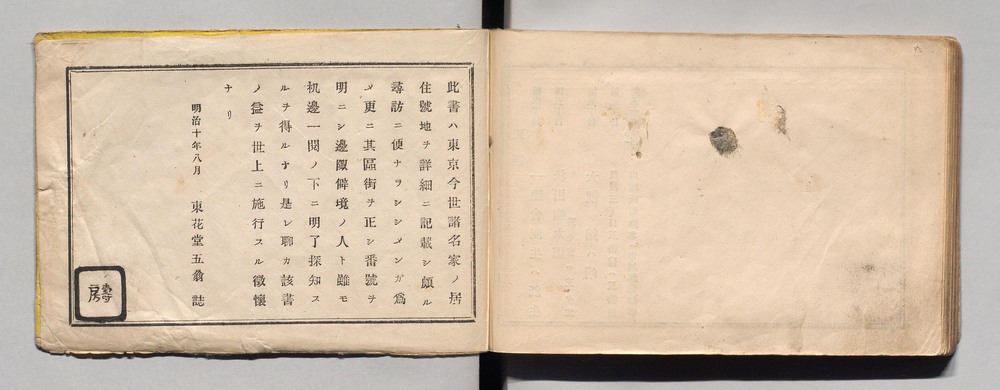 此書ハ東京今世諸名家ノ居
住號地ヲ詳細ニ記載シ頗ル
尋訪ニ便ナラシシメンガ爲
メ更ニ其區街ヲ正シ番號ヲ
明ニシ邊陬僻境ノ人ト雖モ
机邊一閲ノ下ニ明了探知ス
ルヲ得ルナリ是レ聊カ該書
ノ益ヲ世上ニ施行スル徴懷
ナリ
明治十年八月 東花堂五翁誌
壽房